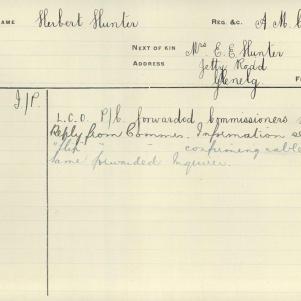 NAME Herbert Hunter REG. &C. A M C
NEXT OF KIN Mrs E. E. Hunter
ADDRESS Jetty Road
Glenelg
I/P
L.C.O. P/C. forwarded Commissioners
Reply from Commrs. Information
" " confirming cable
same forwarded Inquirer.